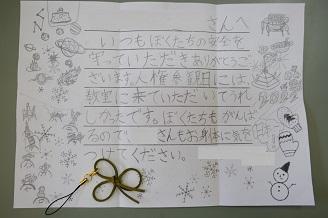 さんへ
いつもぼくたちの安全を
守っていただきありがとうご
ざいます。人権参観日には、
教室に来ていただいてうれ
しかったです。ぼくたちもがんば
るので、 さんもお身体に気を
つけてください。